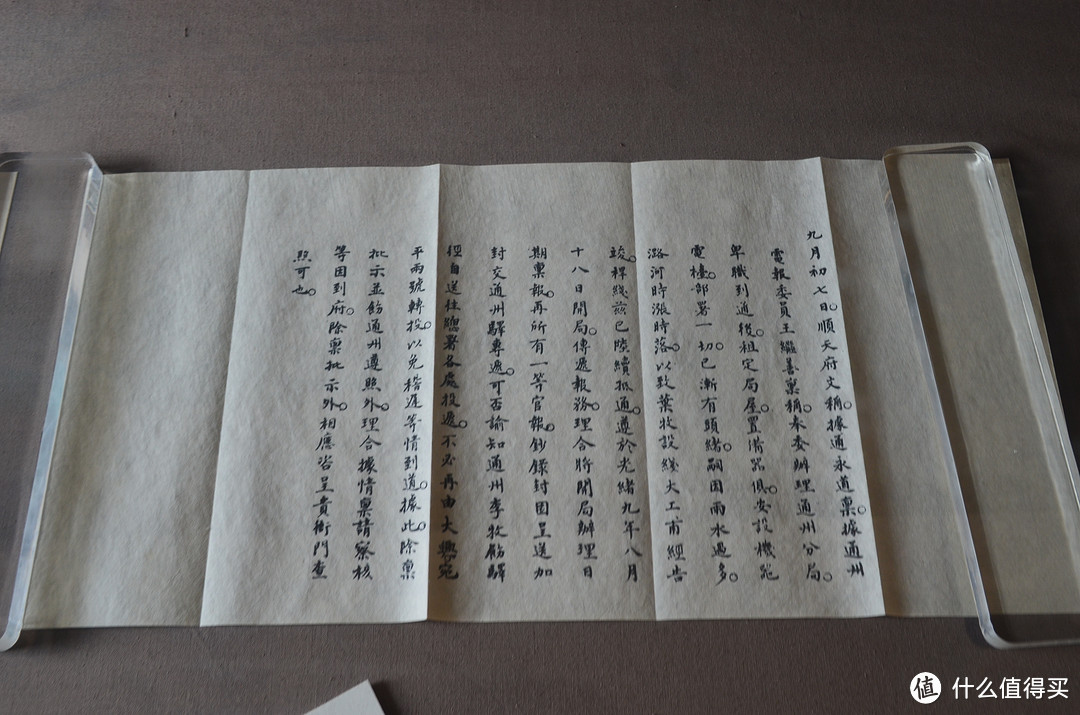 九月初七日。順天府文稱。據通永道稟。據通州
電報委員王繼善稟稱。奉委辦理通州分局。
卑職到通後。租定局屋。置備器俱。安設機
電檯。部署一切。已漸有頭緒。嗣因雨水過多。
潞河時漲時落。以致葉牧設綫大工甫經告
竣。桿綫茲已陸續抵通。遵於光緒九年八月
十八日開局。傳遞報務。理合將開局辦理日
期稟報。再所有一等官報。鈔錄封固呈送加
封交通州驛專遞。可否諭知通州李牧飭驛
徑自送往總署各處投遞。不必再由大興宛
平兩號轉投。以免稽遲等情到道。據此。除稟
批示並飭通州遵照外。理合據情稟請察核
等因到府。除稟批示外。相應咨呈貴衙門查
照可也。
值 什么值得买